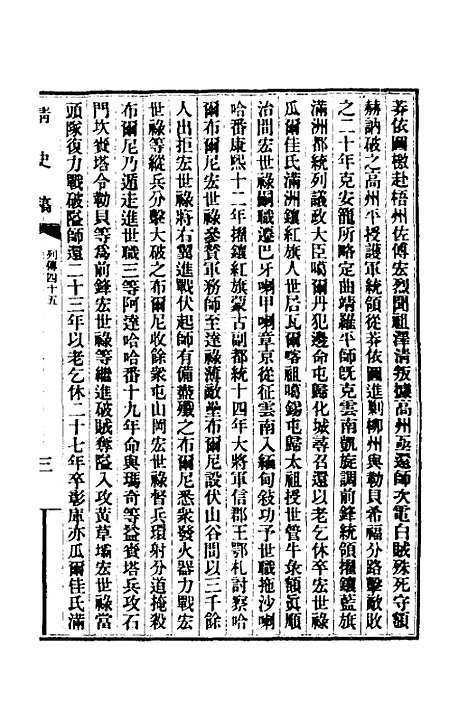 莽依圖檄赴梧州佐傅宏烈聞祖澤清叛據高州亟還師次電白賊殊死守額
赫訥破之高州平授護軍統領從莽依圖進剿柳州與勒貝希福分路擊敵敗
之二十年克安籠所略定曲靖羅平師旣克雲南凱旋調前鋒統領擢鑲藍旗
滿洲都統列議政大臣噶爾丹犯邊命屯歸化城尋召還以老乞休卒宏世祿
瓜爾佳氏滿洲鑲紅旗人世居瓦爾喀祖噶錫屯歸太祖授世管牛彔額眞順
治間宏世祿嗣職遷巴牙喇甲喇章京從征雲南入緬甸敍功予世職拖沙喇
哈番康熙十二年擢鑲紅旗蒙古副都統十四年大將軍信郡王鄂札討察哈
爾布爾尼宏世祿參贊軍務師至達祿薄敵壘布爾尼設伏山谷間以三千餘
人出拒宏世祿將右翼進戰伏起師有備盡殲之布爾尼悉衆發火器力戰宏
世祿等縱兵分擊大破之布爾尼收餘衆屯山岡宏世祿督兵環射分道掩殺
布爾尼乃遁走進世職三等阿達哈哈番十九年命與瑪奇等益賚塔兵攻石
門坎賚塔令勒貝等爲前鋒宏世祿等繼進破賊奪隘入攻黃草壩宏世祿當
頭隊復力戰破隘師還二十三年以老乞休二十七年卒彰庫亦瓜爾佳氏滿
清史稿
列傳四十五
三